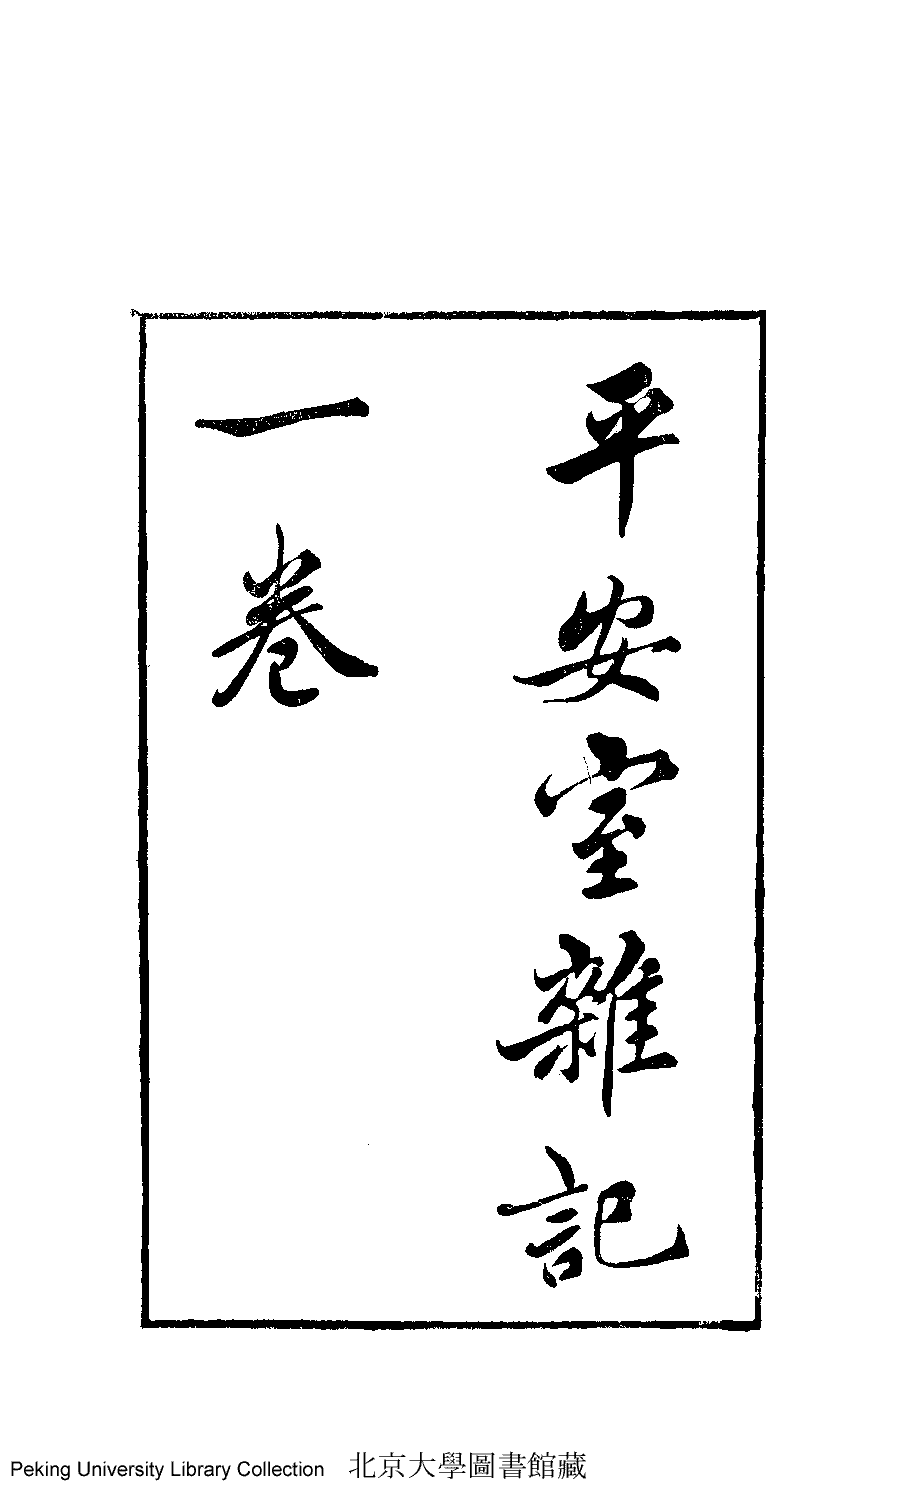 平安室雜記
一卷
Peking University Library Collection 北京大學圖書館藏